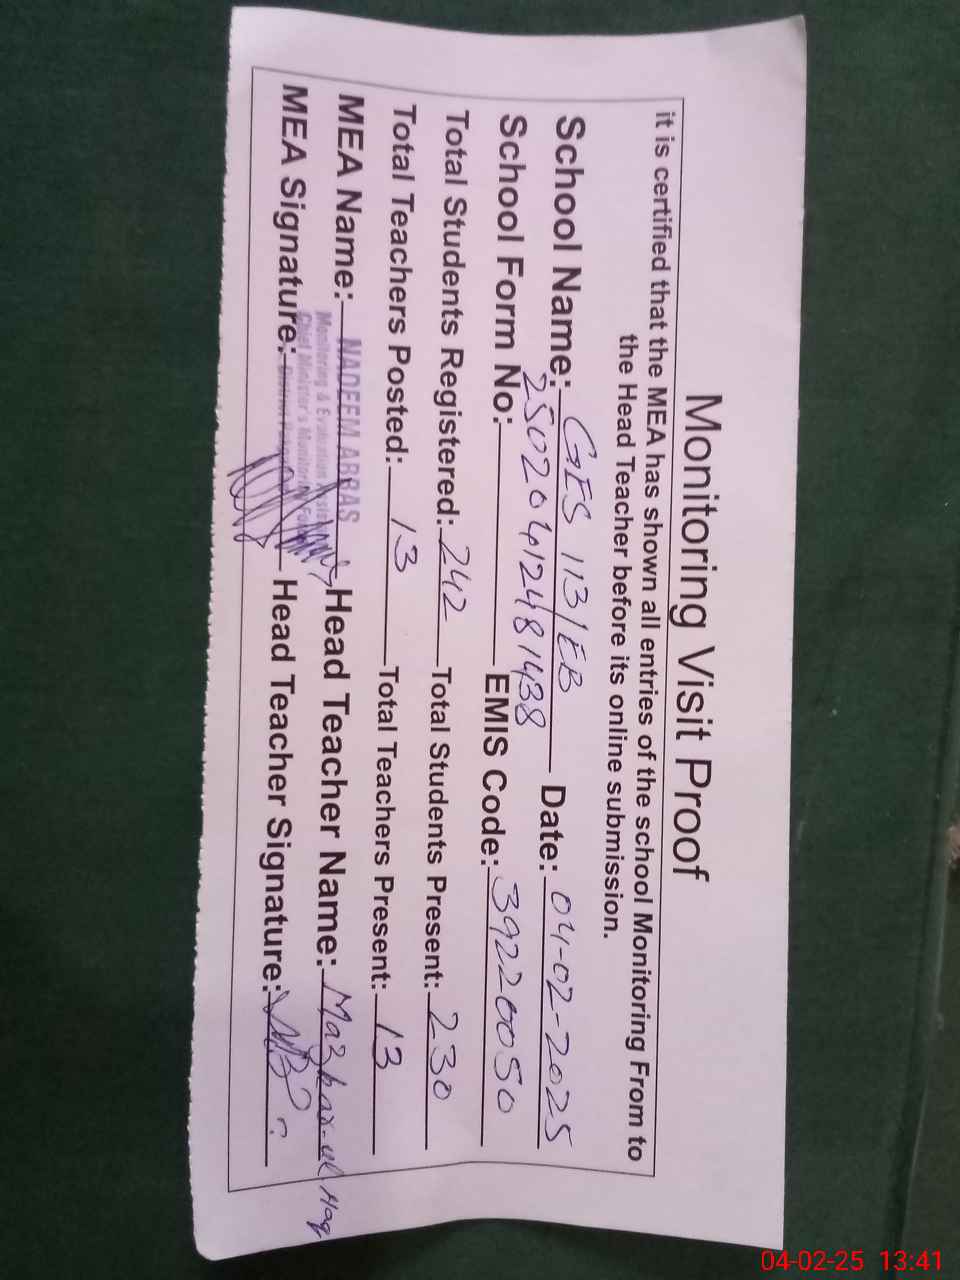 Monitoring Visit Proof
it is certified that the MEA has shown all entries of the school Monitoring From to
the Head Teacher before its online submission.
School Name: GES 113/EB Date: 04-02-2025
School Form No: 25020412481438 EMIS Code: 39220050
Total Students Registered: 242 Total Students Present: 230
Total Teachers Posted: 13 Total Teachers Present: 13
MEA Name: NADEEM ABBAS Head Teacher Name: Mazhar-ul Haq
Monitoring & Evaluation Assistant
Chief Minister's Monitoring Force
MEA Signature: Head Teacher Signature:
04-02-25 13:41